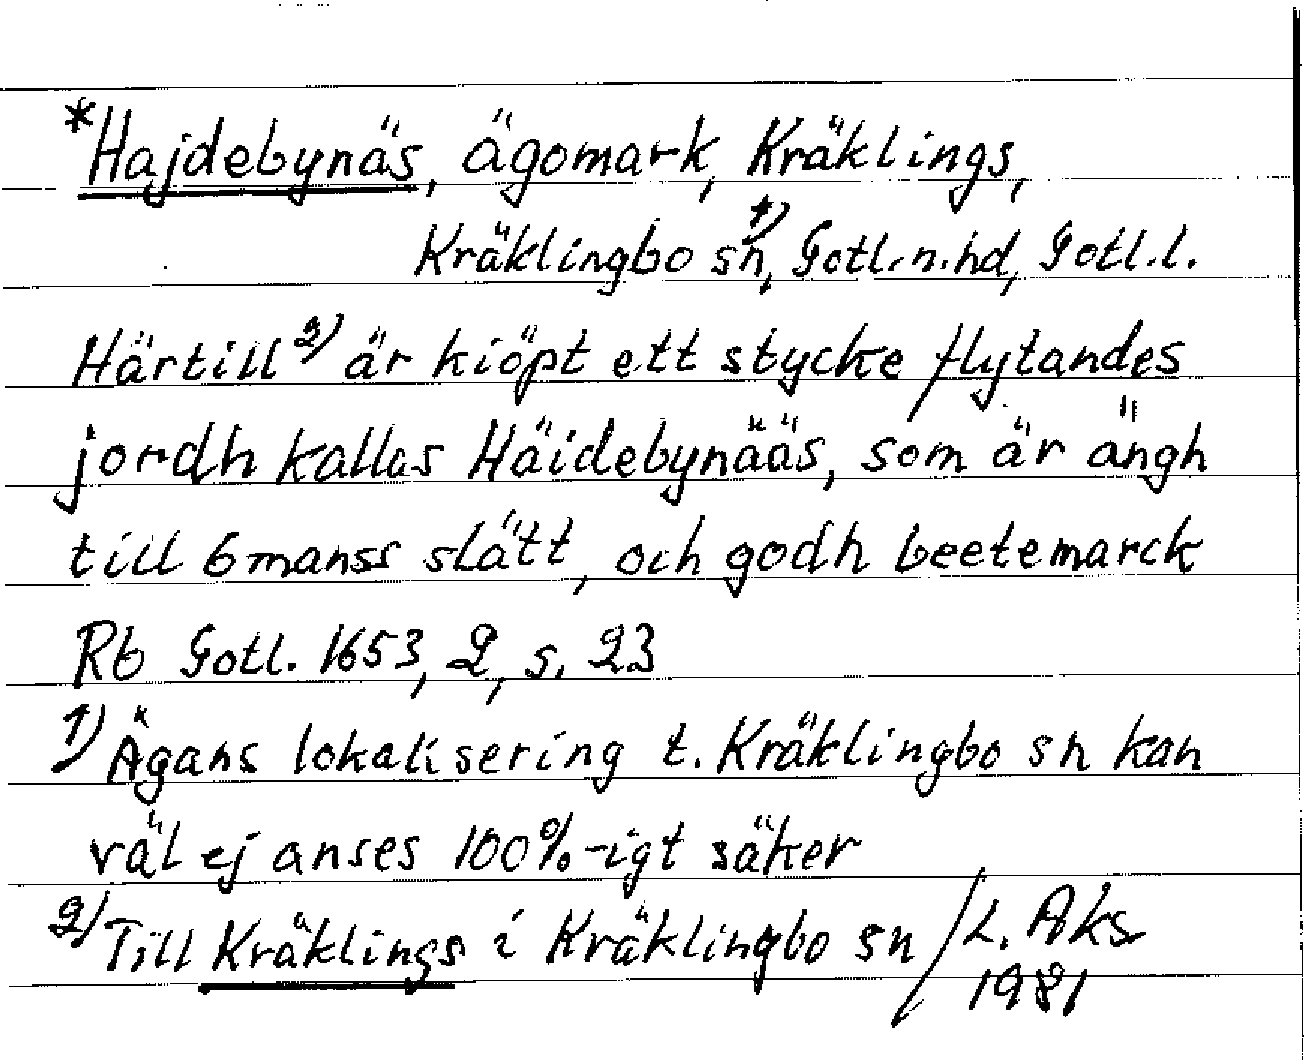 *Hajdebynäs, ägomark, Kräklings,
Kräklingbo sn¹⁾, Gotl.n.hd, Gotl.l.
Härtill²⁾ är kiöpt ett stycke flytandes
jordh kallas Häidebynääs, som är ängh
till 6 manss slätt, och godh beetemarck
Rb Gotl. 1653, 2, s. 23
1) Ägans lokalisering t. Kräklingbo sn kan
väl ej anses 100%-igt säker
2) Till Kräklings i Kräklingbo sn / L. Aks
1981